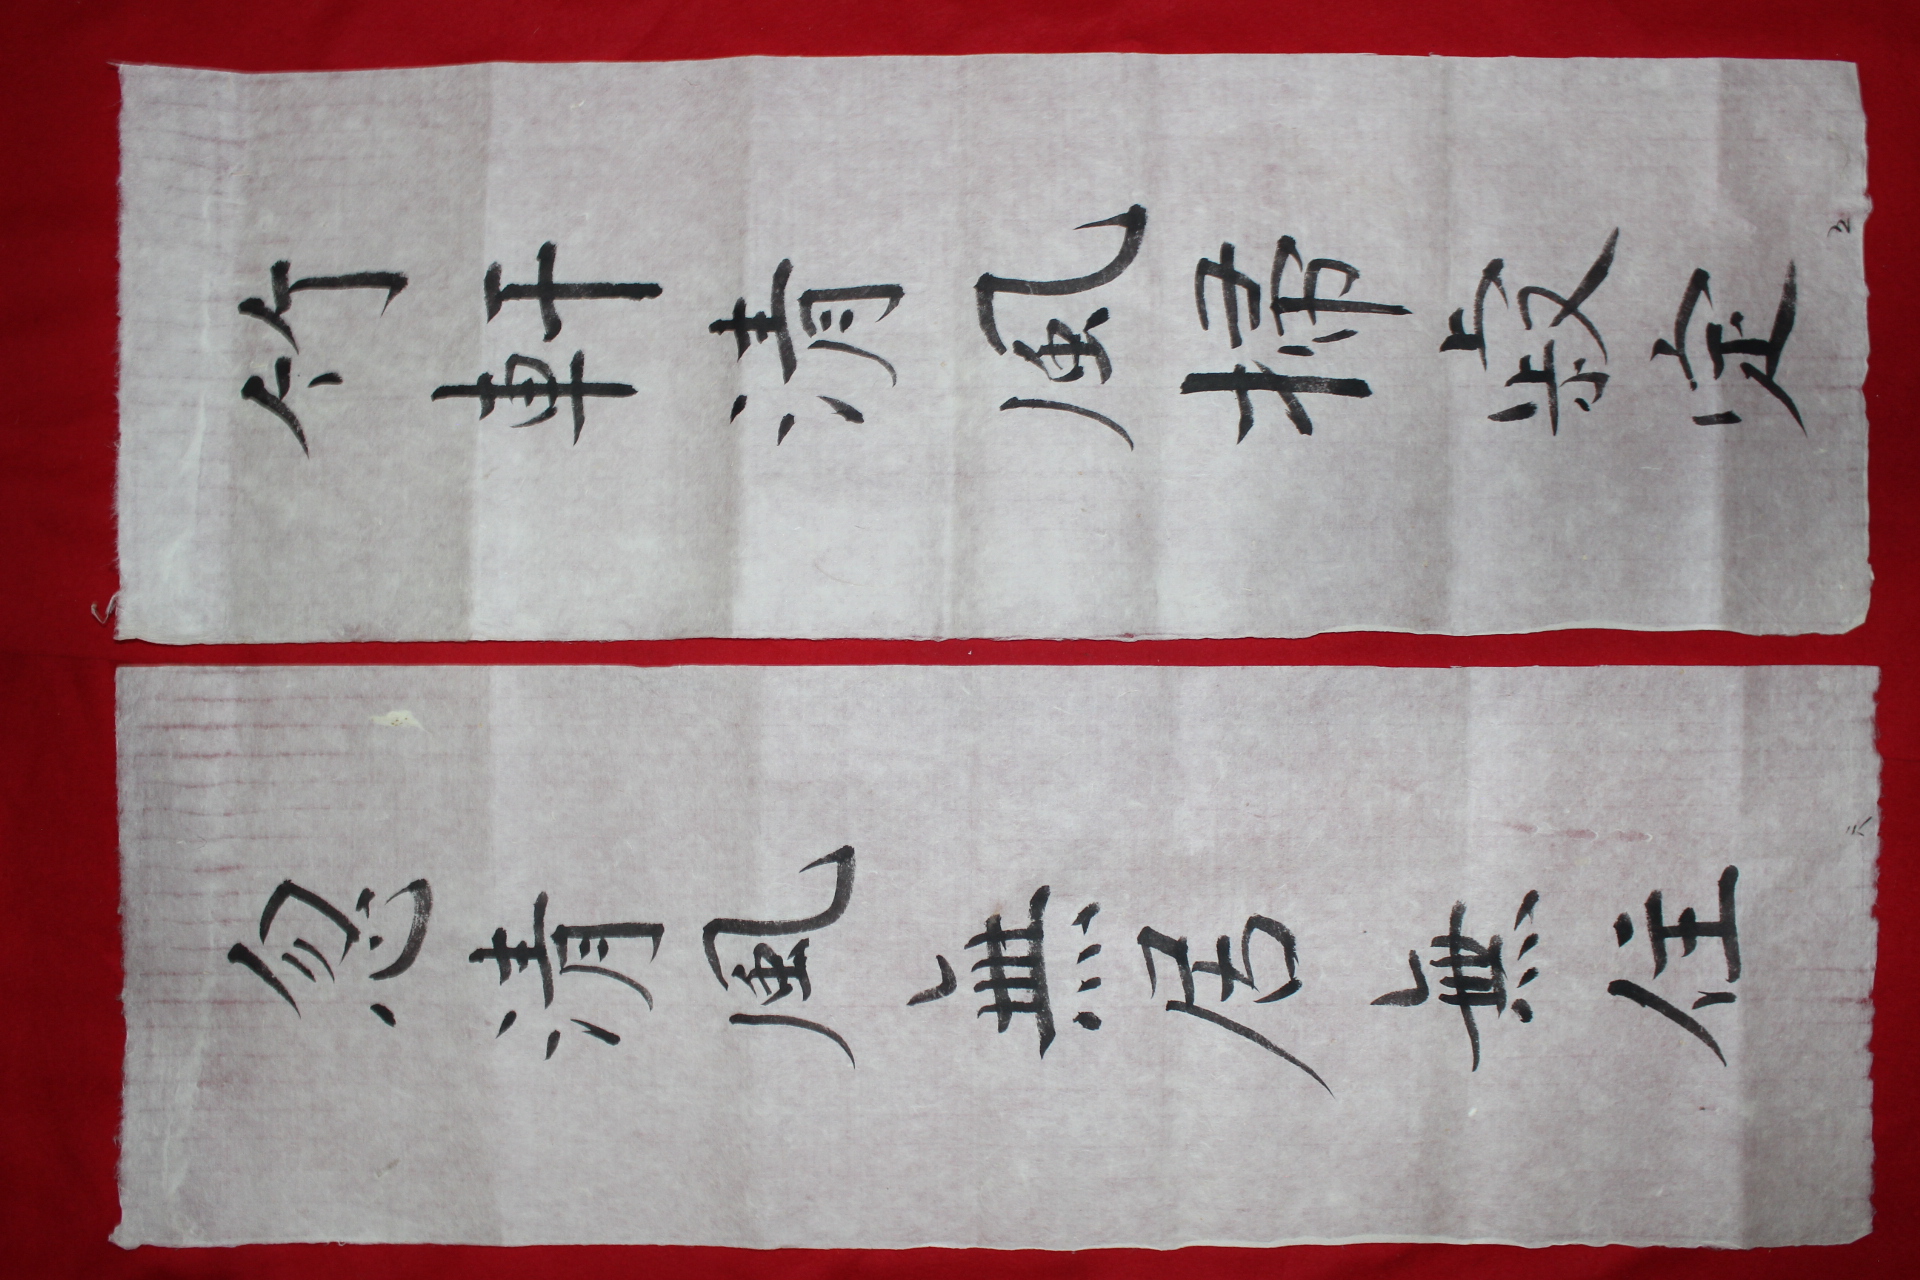 竹軒清風掃寂定
忽清風無居無住